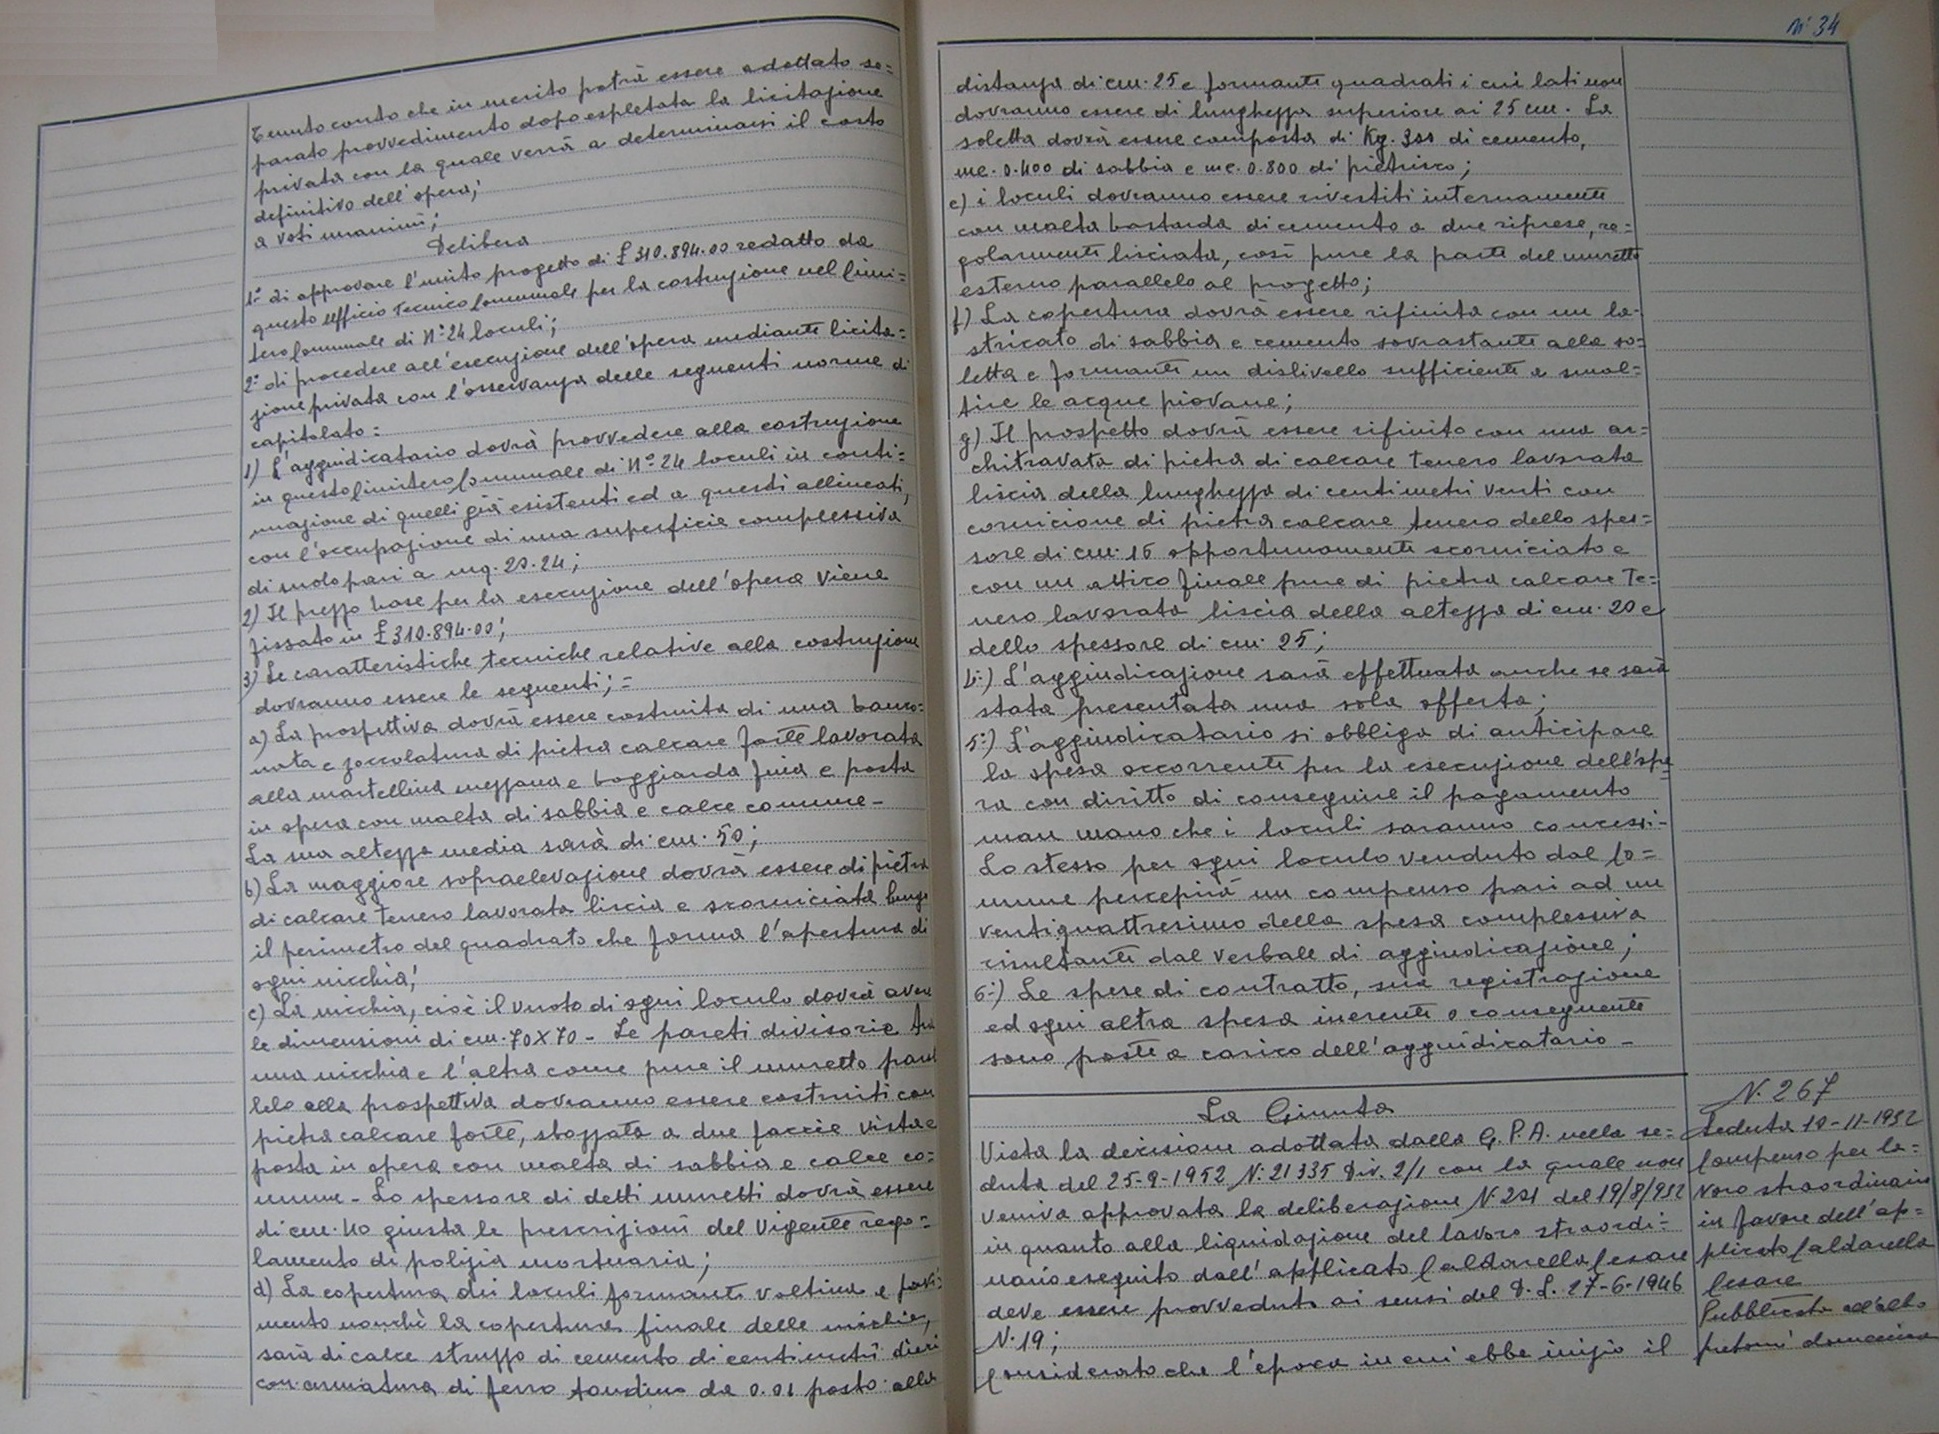 Tenuto conto che in merito potrà essere adottato se=
parato provvedimento dopo espletata la licitazione
privata con la quale verrà a determinarsi il costo
definitivo dell'opera;
a voti unanimi;
Delibera
1° di approvare l'unito progetto di £ 310.894.00 redatto da
questo Ufficio Tecnico Comunale per la costruzione nel Cimi=
tero Comunale di N° 24 loculi;
2° di procedere all'esecuzione dell'opera mediante licita=
zione privata con l'osservanza delle seguenti norme di
capitolato:
1) L'aggiudicatario dovrà provvedere alla costruzione
in questo Cimitero Comunale di N° 24 loculi in conti=
nuazione di quelli già esistenti ed a questi allineati,
con l'occupazione di una superficie complessiva
di suolo pari a mq. 20.24;
2) Il prezzo base per la esecuzione dell'opera viene
fissato in £ 310.894.00;
3) Le caratteristiche tecniche relative alla costruzione
dovranno essere le seguenti; =
a) La prospettiva dovrà essere costruita di una banco=
nata e zoccolatura di pietra calcare forte lavorata
alla martellina mezzana e boggiarda fina e posta
in opera con malta di sabbia e calce comune -
La sua altezza media sarà di cm. 50;
b) La maggiore sopraelevazione dovrà essere di pietra
di calcare tenero lavorata liscia e scorniciata lungo
il perimetro del quadrato che forma l'apertura di
ogni nicchia;
c) La nicchia, cioè il vuoto di ogni loculo dovrà avere
le dimensioni di cm. 70 X 70 - Le pareti divisorie tra
una nicchia e l'altra come pure il muretto paral
lelo alla prospettiva dovranno essere costruiti con
pietra calcare forte, sbozzata a due faccie vista e
posta in opera con malta di sabbia e calce co=
mune - Lo spessore di detti muretti dovrà essere
di cm. 40 giusta le prescrizioni del vigente rego=
lamento di polizia mortuaria;
d) La copertura dei loculi formanti voltina e pavi=
mento nonchè la copertura finale delle nicchie,
sarà di calce struzzo di cemento di centimetri dieci
con armatura di ferro tondino da 0.01 posto alla
N° 34
distanza di cm. 25 e formanti quadrati i cui lati non
dovranno essere di lunghezza superiore ai 25 cm. La
soletta dovrà essere composta di Kg. 300 di cemento,
mc. 0.400 di sabbia e mc. 0.800 di pietrisco;
e) i loculi dovranno essere rivestiti internamente
con malta bastarda di cemento a due riprese, re=
golarmente lisciata, così pure la parte del muretto
esterno parallelo al progetto;
f) La copertura dovrà essere rifinita con un la=
stricato di sabbia e cemento sovrastante alla so=
letta e formante un dislivello sufficiente a smal=
tire le acque piovane;
g) Il prospetto dovrà essere rifinito con una ar=
chitravata di pietra di calcare tenero lavorata
liscia della lunghezza di centimetri venti con
cornicione di pietra calcare tenero dello spes=
sore di cm. 16 opportunamente scorniciato e
con un attico finale pure di pietra calcare te=
nero lavorata liscia della altezza di cm. 20 e
dello spessore di cm. 25;
4°) L'aggiudicazione sarà effettuata anche se sarà
stata presentata una sola offerta;
5°) L'aggiudicatario si obbliga di anticipare
la spesa occorrente per la esecuzione dell'ope
ra con diritto di conseguire il pagamento
man mano che i loculi saranno concessi -
Lo stesso per ogni loculo venduto dal Co=
mune percepirà un compenso pari ad un
ventiquattresimo della spesa complessiva
risultante dal verbale di aggiudicazione;
6°) Le spese di contratto, sua registrazione
ed ogni altra spesa inerente o conseguente
sono poste a carico dell'aggiudicatario -
La Giunta
Vista la decisione adottata dalla G.P.A. nella se=
duta del 25-9-1952 N. 21335 Div. 2/1 con la quale non
veniva approvata la deliberazione N. 201 del 19/8/952
in quanto alla liquidazione del lavoro straordi=
nario eseguito dall'applicato Caldarella Cesare
deve essere provveduto ai sensi del D.L. 27-6-1946
N. 19;
Considerato che l'epoca in cui ebbe inizio il
N. 267
Seduta 10-11-1952
Compenso per la=
voro straordinario
in favore dell'ap=
plicato Caldarella
Cesare
Pubblicata all'albo
pretorio domenica